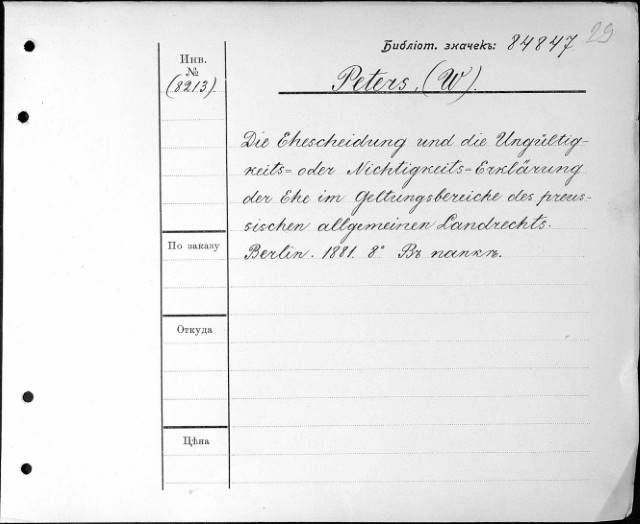 29
Библіот. значекъ: 84847
Инв.
№
(8213).
Peters, (W).
Die Ehescheidung und die Ungültig-
keits= oder Nichtigkeits=Erklärung
der Ehe im Geltungsbereiche des preus-
sischen allgemeinen Landrechts.
Berlin. 1881. 8° Въ папкѣ.
По заказу
Откуда
Цѣна